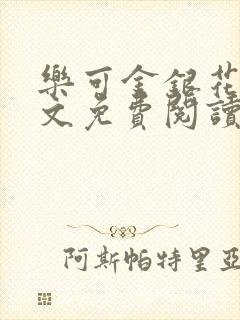 樂可金銀花
文免費閱讀
阿斯帕特里亞